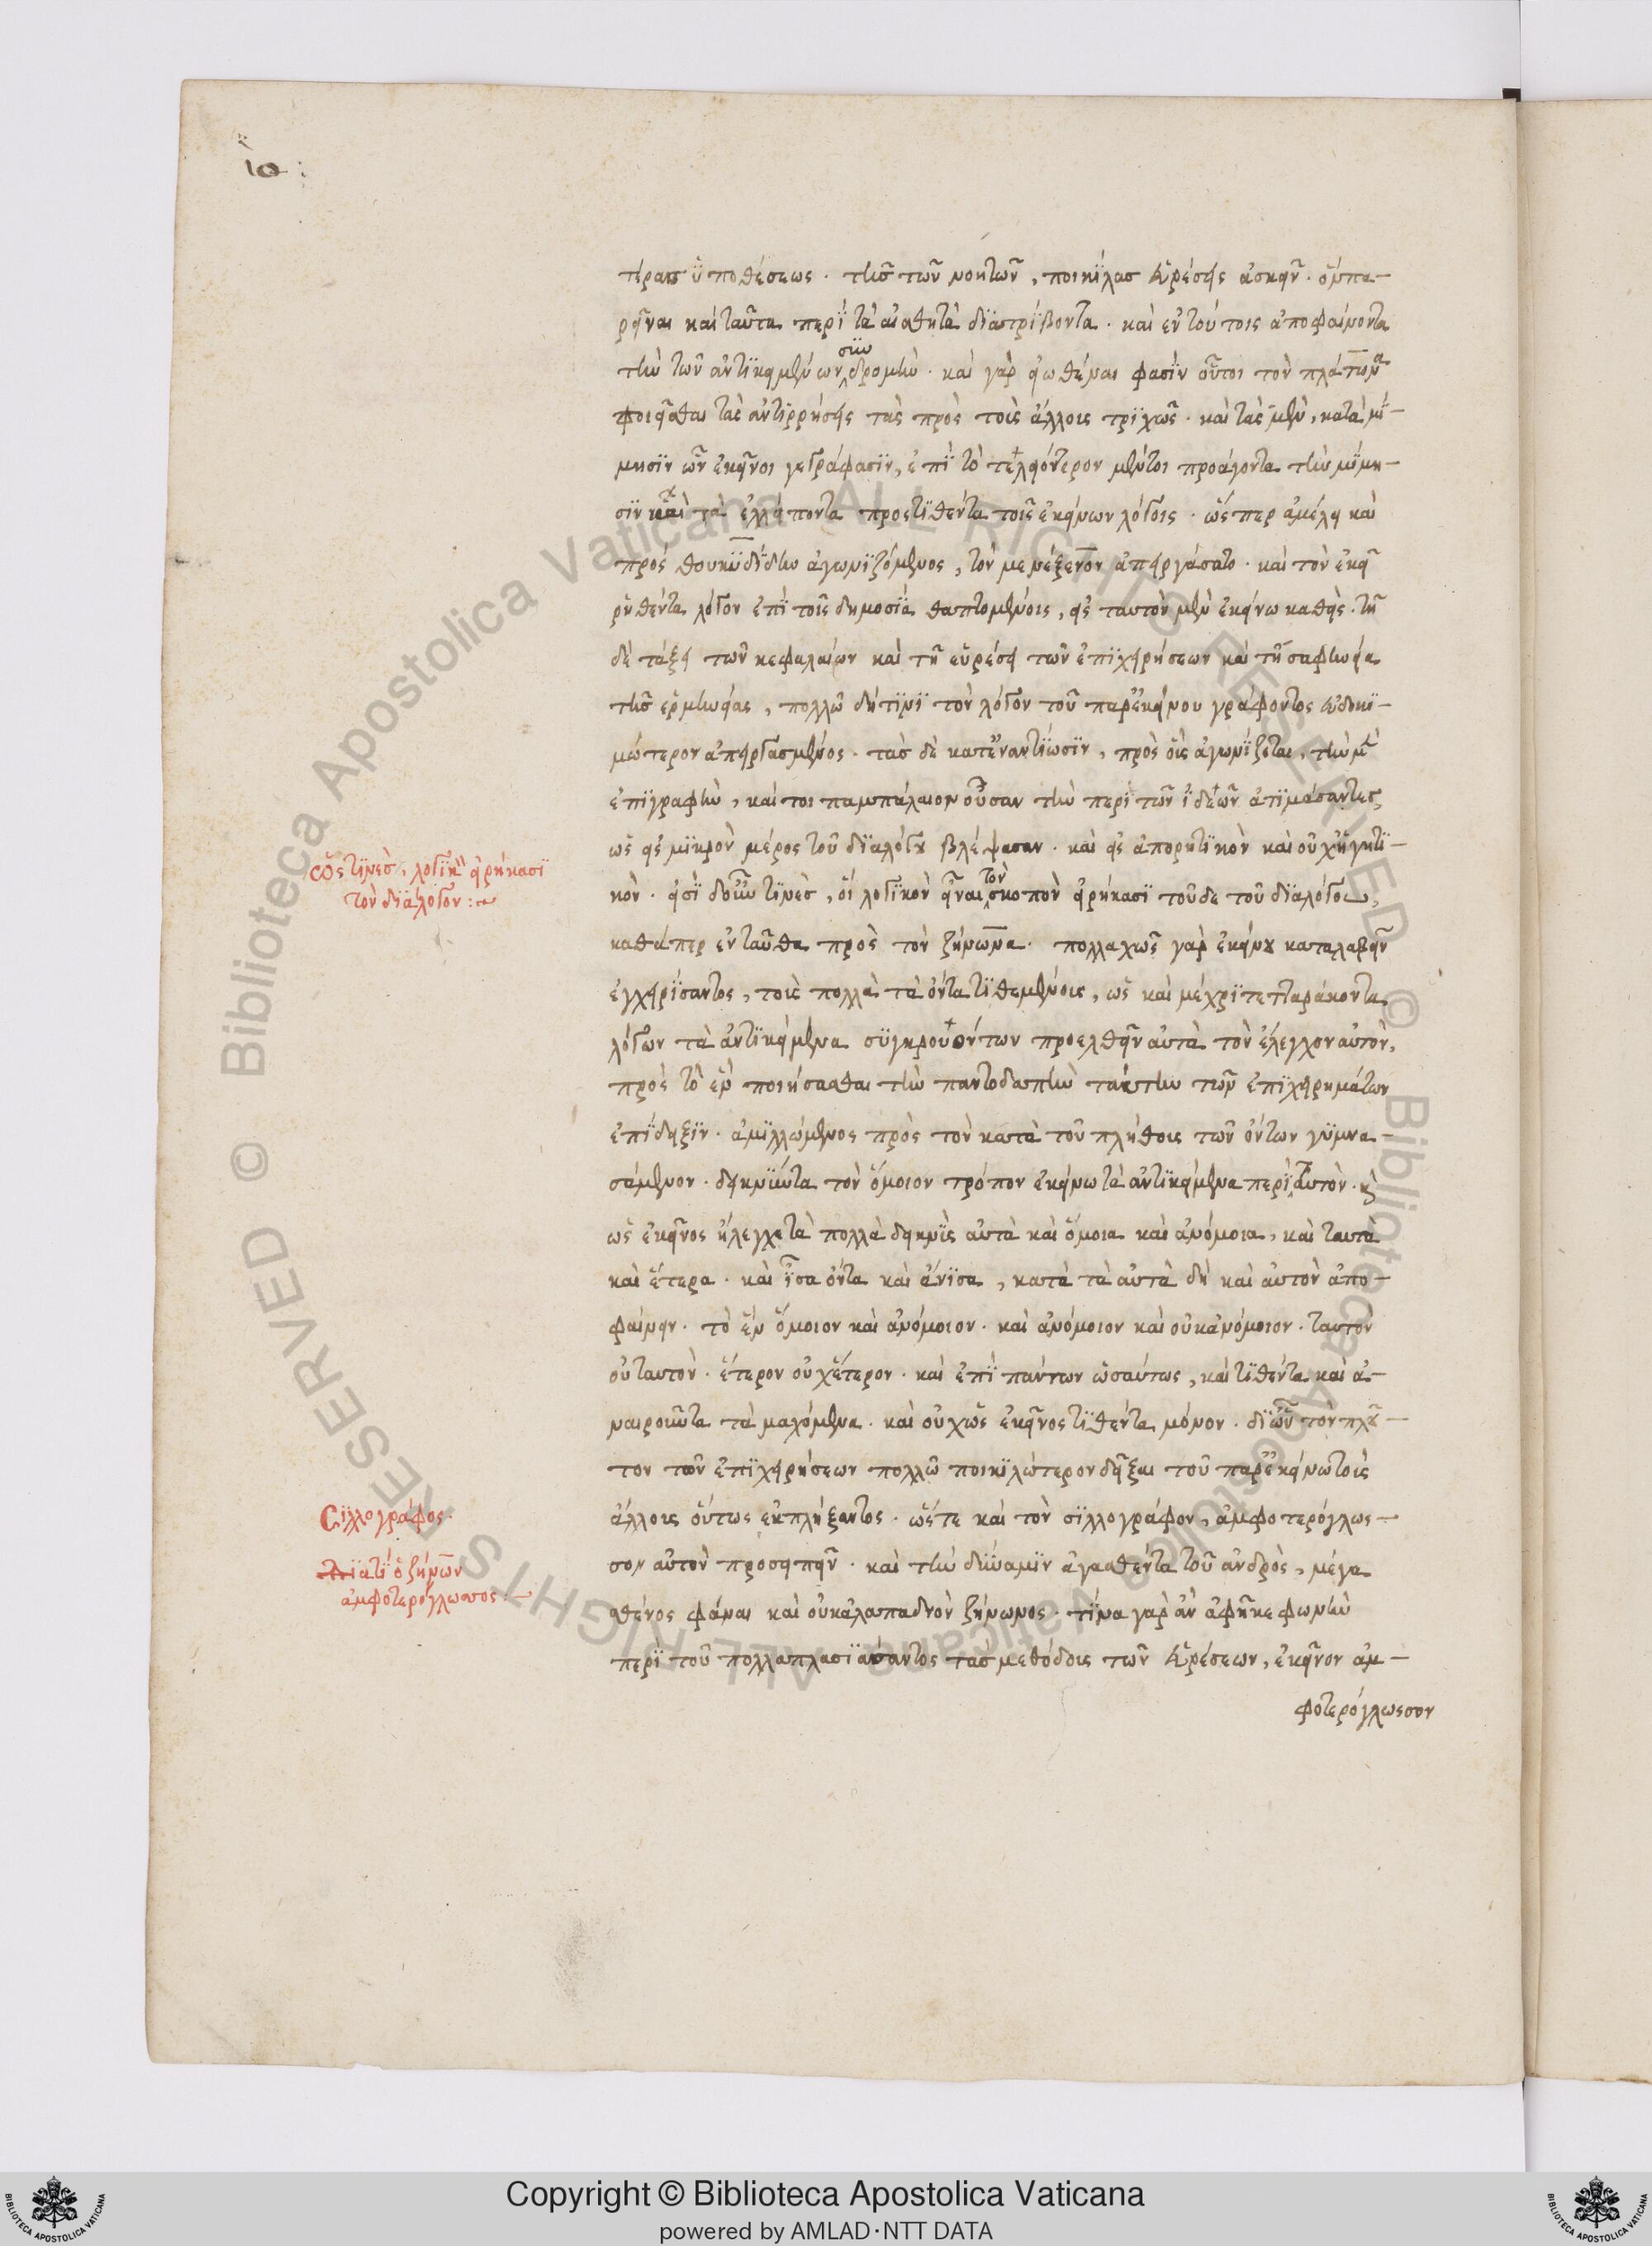 ιο:
τέρας ὑποθέσεως. τῆς τῶν νοητῶν, ποικίλας εὑρέσεις ἀσκεῖν. οὐ πα-
ρεῖναι καὶ ταῦτα περὶ τὰ αἰσθητὰ διατρίβοντα. καὶ ἐν τούτοις ἀποφαίνοντα
τὴν τῶν ἀντικειμένων συνδρομὴν. καὶ γὰρ εἰωθέναι φασὶν οὗτοι τὸν πλάτωνα
ποιεῖσθαι τὰς ἀντιρρήσεις τὰς πρὸς τοὺς ἄλλους τριχῶς. καὶ τὰς μὲν, κατὰ μί-
μησιν ὧν ἐκεῖνοι γεγράφασιν, ἐπὶ τὸ τελεώτερον μέντοι προάγοντα τὴν μίμη-
σιν καὶ τὰ ἐλλείποντα προστιθέντα τοῖς ἐκείνων λόγοις. ὥσπερ ἀμέλει καὶ
πρὸς θουκυδίδην ἀγωνιζόμενος, τὸν μενέξενον ἀπειργάσατο. καὶ τὸν ἐκεῖ
ῥηθέντα λόγον ἐπὶ τοῖς δημοσίᾳ θαπτομένοις, εἰς ταυτὸν μὲν ἐκείνω καθεὶς. τῇ
δὲ τάξει τῶν κεφαλαίων καὶ τῇ εὑρέσει τῶν ἐπιχειρήσεων καὶ τῇ σαφηνείᾳ
τῆς ἑρμηνείας, πολλῶ δή τινι τὸν λόγον τοῦ παρ' ἐκείνου γράφοντος εὐδοκι-
μώτερον ἀπειργασμένος. τὰς δὲ κατ' ἐναντίωσιν, πρὸς οὓς ἀγωνίζεται, τὴν μὲν
ἐπιγραφὴν, καίτοι παμπάλαιον οὖσαν τὴν περὶ τῶν ἰδεῶν ἀτιμάσαντες
ὡς εἰς μικρὸν μέρος τοῦ διαλόγου βλέψασαν. καὶ εἰς ἀπορητικὸν καὶ οὐχ ὑφηγητι-
κόν. εἰσὶ δ' οὖν τινὲς, οἳ λογικὸν εἶναι τὸν σκοπὸν εἰρήκασι τοῦδε τοῦ διαλόγου,
καθάπερ ἐνταῦθα πρὸς τὸν ζήνωνα. πολλαχῶς γὰρ ἐκείνου καταλαβεῖν
ἐγχειρίσαντος, τοὺς πολλὰ τὰ ὄντα τιθεμένους, ὡς καὶ μέχρι τετταράκοντα
λόγων τὰ ἀντικείμενα συγκρουόντων προελθεῖν αὐτὰ τὸν ἔλεγχον αὐτὸν,
πρὸς τὸ ἓν ποιήσασθαι τὴν παντοδαπὴν ταύτην τῶν ἐπιχειρημάτων
ἐπίδειξιν. ἁμιλλώμενος πρὸς τὸν κατὰ τοῦ πλήθους τῶν ὄντων γυμνα-
σάμενον. δεικνύντα τὸν ὅμοιον τρόπον ἐκείνω τὰ ἀντικείμενα περὶ ταυτὸν. καὶ
ὡς ἐκεῖνος ἤλεγχε τὰ πολλὰ δεικνὺς αὐτὰ καὶ ὅμοια καὶ ἀνόμοια, καὶ ταυτὰ
καὶ ἕτερα. καὶ ἴσα ὄντα καὶ ἄνισα, κατὰ τὰ αὐτὰ δὴ καὶ αὐτὸν ἀπο-
φαίνειν. τὸ ἓν ὅμοιον καὶ ἀνόμοιον. καὶ ἀνόμοιον καὶ οὐκ ἀνόμοιον. ταυτὸν
οὐ ταυτὸν. ἕτερον οὐχ ἕτερον. καὶ ἐπὶ πάντων ὡσαύτως, καὶ τιθέντα καὶ ἀ-
ναιροῦντα τὰ μαχόμενα. καὶ οὐχ ὡς ἐκεῖνος τιθέντα μόνον. δι' ὧν τὸν πλοῦ-
τον τῶν ἐπιχειρήσεων πολλῶ ποικιλώτερον δεῖξαι τοῦ παρ' ἐκείνω τοὺς
ἄλλους οὕτως ἐκπλήξαντος. ὥστε καὶ τὸν σιλλογράφον, ἀμφοτερόγλωσ-
σον αὐτὸν προσειπεῖν. καὶ τὴν δύναμιν ἀγασθέντα τοῦ ἀνδρὸς, μέγα
σθένος φάναι καὶ οὐκ ἀλαπαδνὸν ζήνωνος. τίνα γὰρ ἂν ἀφῆκε φωνὴν
περὶ τοῦ πολλαπλασιάσαντος τὰς μεθόδους τῶν εὑρέσεων, ἐκεῖνον ἀμ-
φοτερόγλωσσον
ὥς τινὲς, λογικὸν εἰρήκασι
τὸν διάλογον:
Σιλλογράφος.
Διατί ὁ ζήνων
ἀμφοτερόγλωσσος.
Copyright © Biblioteca Apostolica Vaticana
powered by AMLAD·NTT DATA
© Biblioteca Apostolica Vaticana ALL RIGHTS RESERVED © Biblioteca Apostolica Vaticana ALL RIGHTS RESERVED
BIBLIOTECA APOSTOLICA VATICANA
BIBLIOTECA APOSTOLICA VATICANA